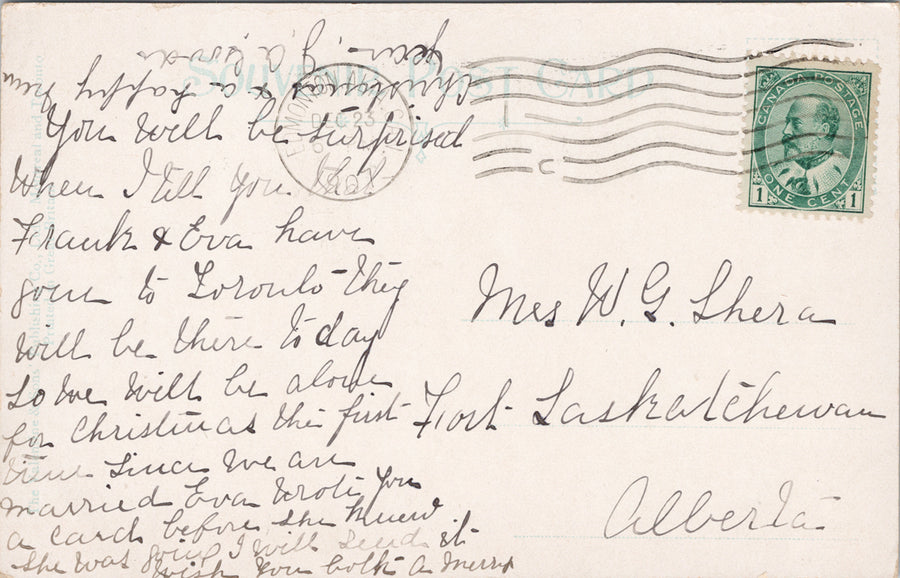 SOUVENIR POST CARD
You will be surprised
when I tell you that
Frank & Eva have
gone to Toronto they
will be there today
so we will be alone
for Christmas the first
time since we are
married Eva wrote you
a card before she knew
she was going I will send it
wish you both a merry
Christmas & a happy new
year
EDMONTON
DEC 23
CANADA POSTAGE
ONE CENT
1 1
C
Mrs W. G. Shera
Fort Saskatchewan
Alberta